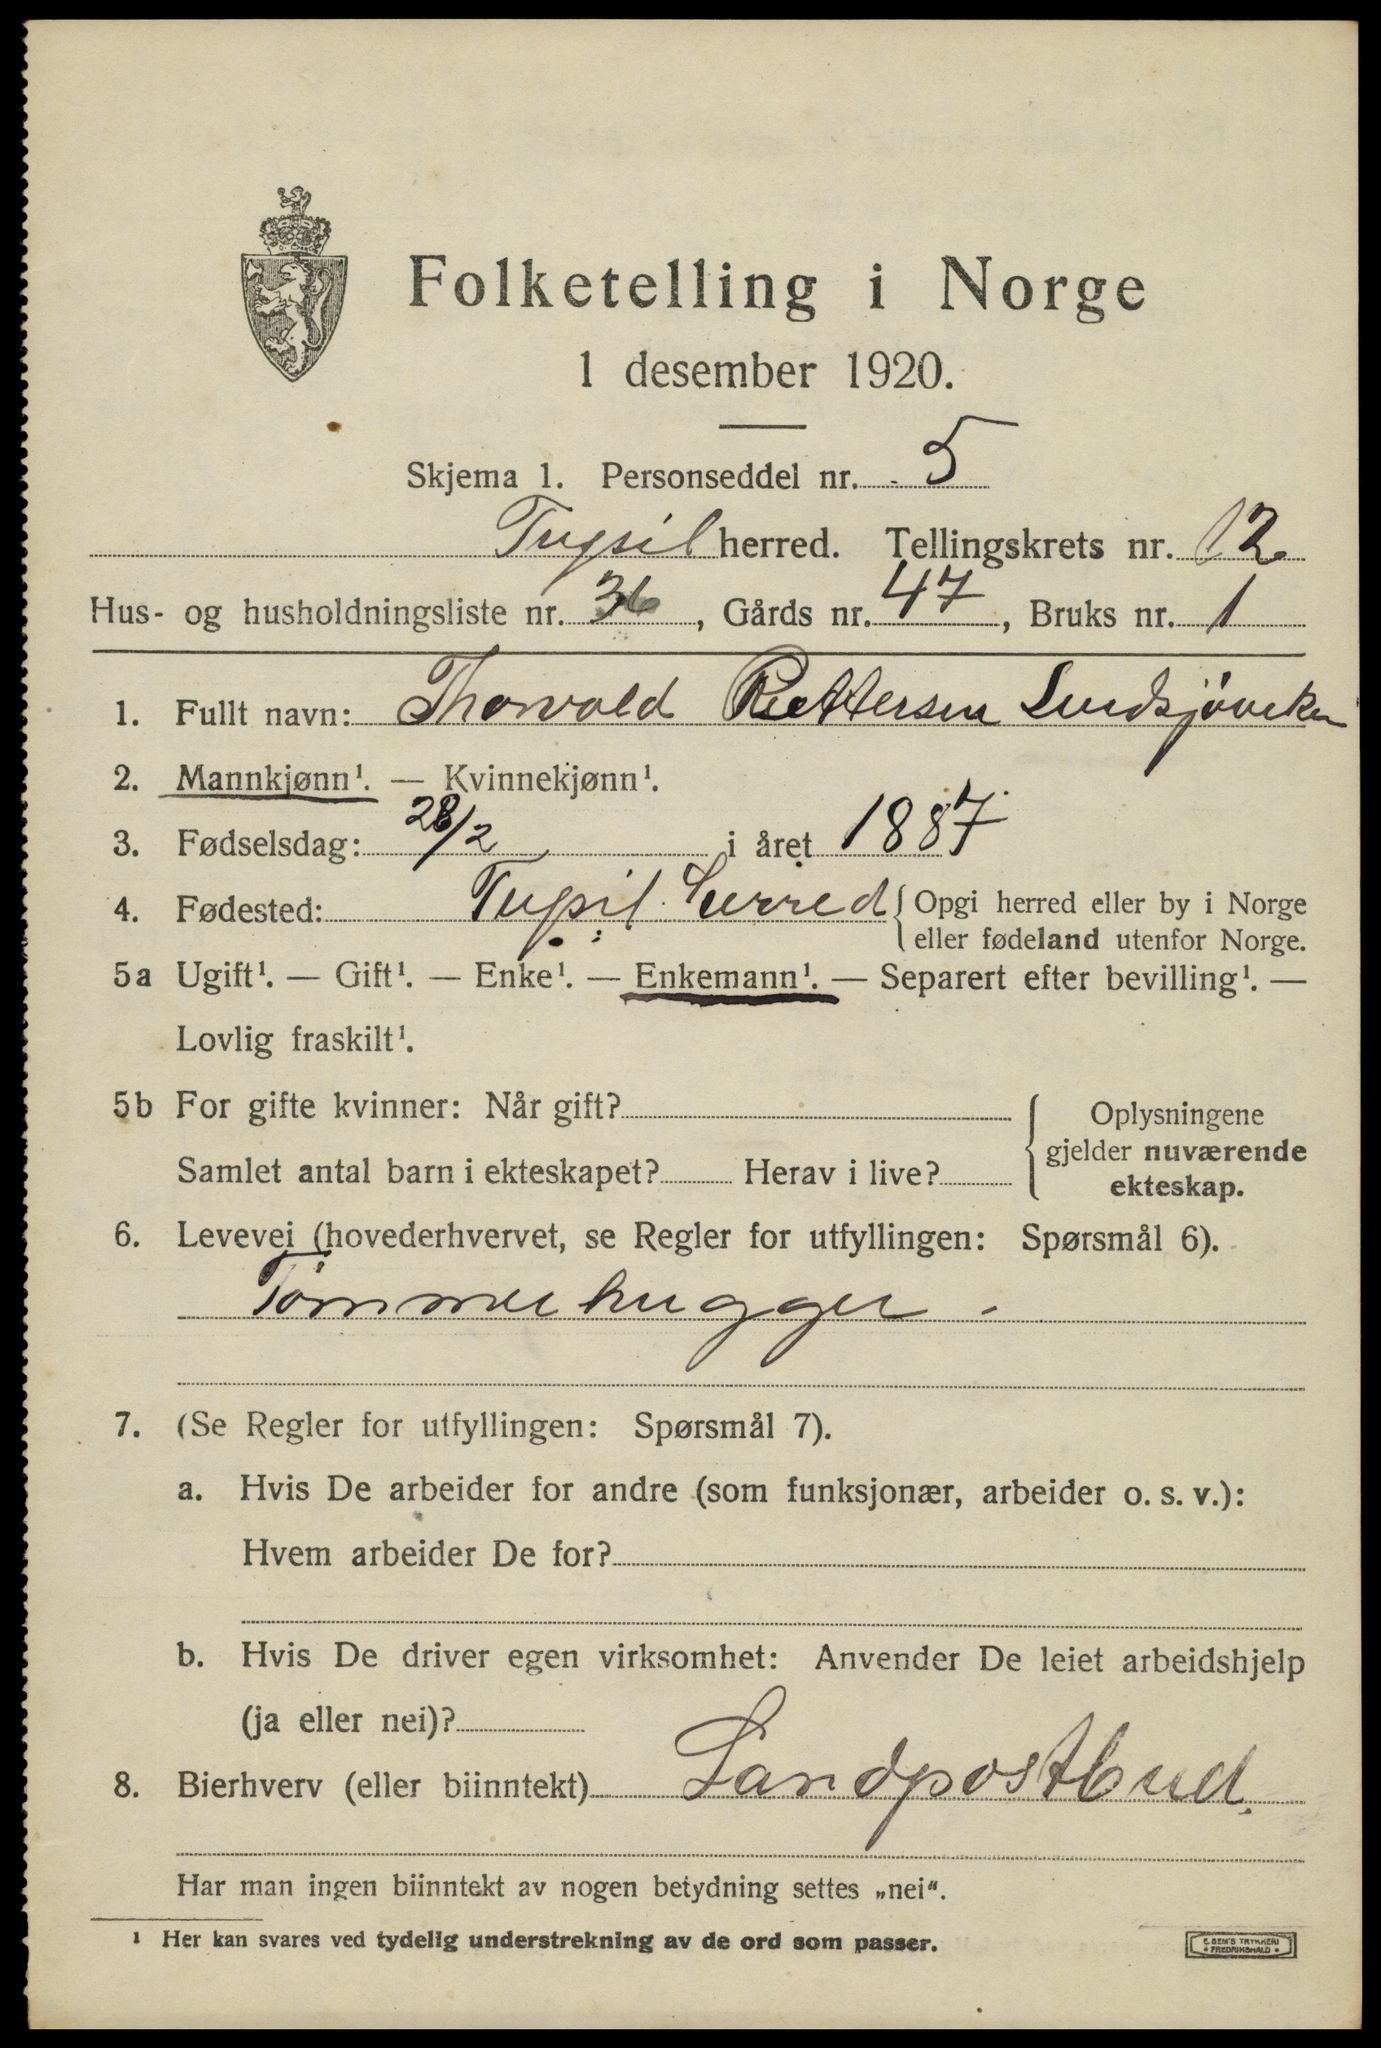 Folketelling i Norge
1 desember 1920.
Skjema 1. Personseddel nr. 5
Trysil herred. Tellingskrets nr. 12
Hus- og husholdningsliste nr. 36, Gårds nr. 47, Bruks nr. 1
1. Fullt navn: Thorvald Pettersen
2. Mannkjønn¹. — Kvinnekjønn¹.
3. Fødselsdag: 28/2 i året 1887
4. Fødested: Trysil herred { Opgi herred eller by i Norge
eller fødeland utenfor Norge.
5a Ugift¹. — Gift¹. — Enke¹. — Enkemann¹. — Separert efter bevilling¹. —
Lovlig fraskilt¹.
5b For gifte kvinner: Når gift?
Samlet antal barn i ekteskapet? Herav i live?
Oplysningene
gjelder nuværende
ekteskap.
6. Levevei (hovederhvervet, se Regler for utfyllingen: Spørsmål 6).
Tømmerhugger.
7. (Se Regler for utfyllingen: Spørsmål 7).
a. Hvis De arbeider for andre (som funksjonær, arbeider o. s. v.):
Hvem arbeider De for?
b. Hvis De driver egen virksomhet: Anvender De leiet arbeidshjelp
(ja eller nei)?
8. Bierhverv (eller biinntekt) Landpostbud.
Har man ingen biinntekt av nogen betydning settes „nei".
¹ Her kan svares ved tydelig understrekning av de ord som passer.
E. SEM'S TRYKKERI
FREDRIKSHALD